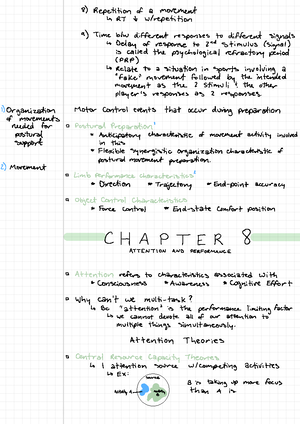 8) Repetition of a movement
↳ RT ↓ w/repetition
9) Time b/w different responses to different signals
↳ Delay of response to 2nd stimulus (signal)
is called the psychological refractory period
(PRP)
↳ Relate to a situation in sports involving a
"fake" movement followed by the intended
movement as the 2 stimuli & the other
player's responses as 2 responses
1) Organization
of movements
needed for
postural
support
2) Movement
Motor control events that occur during preparation
Postural Preparation¹
* Anticipatory characteristic of movement activity involved
in this
* Flexible synergistic organization characteristic of
postural movement preparation
Limb Performance Characteristics²
* Direction * Trajectory * End-point accuracy
Object Control Characteristics
* Force control * End-state comfort position
CHAPTER 8
ATTENTION AND PERFORMANCE
Attention refers to characteristics associated with
* Consciousness * Awareness * Cognitive Effort
Why can't we multi-task?
↳ Bc "attention" is the performance limiting factor
↳ we cannot devote all of our attention to
multiple things simultaneously.
Attention Theories
Central Resource Capacity Theories
↳ 1 attention source w/competing activities
↳ Ex:
B is taking up more focus
than A is